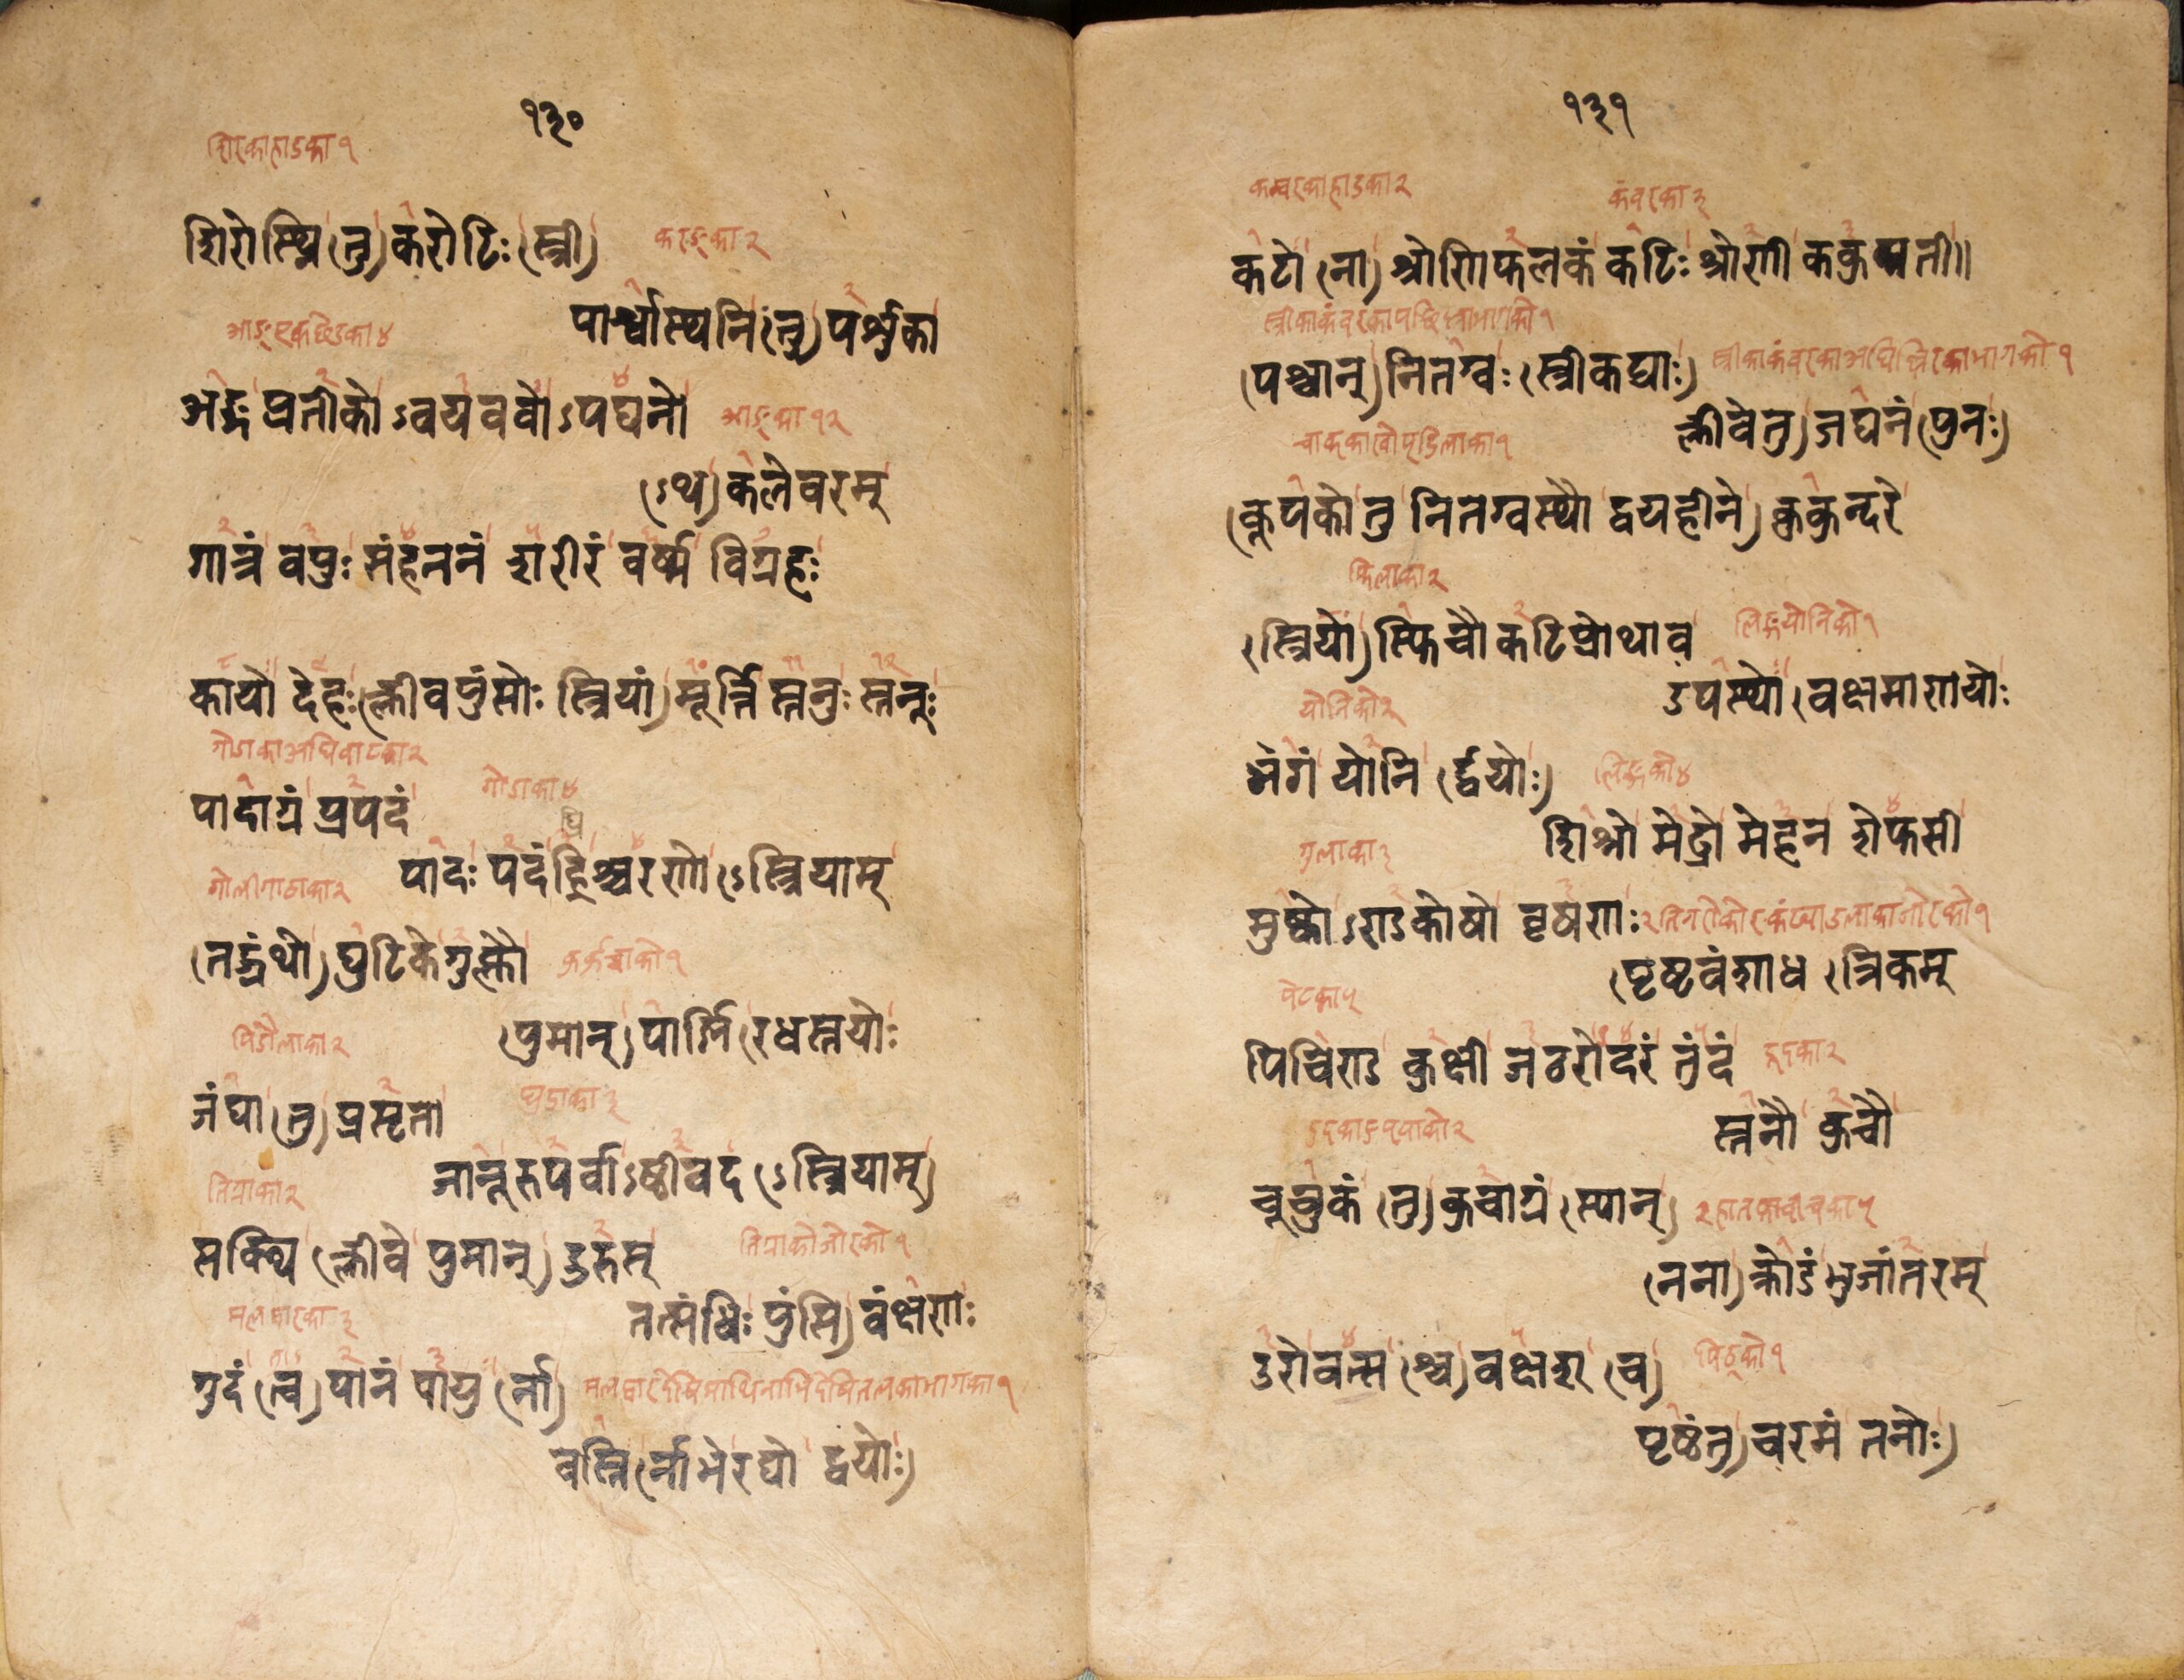 १३०
शिरकाहाडका १
शिरोस्थि (तु) करोटिः (स्त्री)
करङ्का २
पार्श्वास्थनि (तु) पर्शुका
आङ्एकछेडका ४
अङ्गं प्रतीको ऽवयववो ऽपघनो
आङ्का १२
(ऽथ) कलेवरम्
गात्रं वपुः संहननं शरीरं वर्ष्म विग्रहः
कायो देहः (क्लीवपुंसोः स्त्रियां) मूर्त्ति स्तनुः स्तनूः
गोडाकाअघिवाटका २
पादाग्रं प्रपदं
गोडाका ४
पादः पदंह्रिश्चरणो (ऽस्त्रियाम्
गोलीगाठाका २
(तद्ग्रंथी) घुटिके गुल्फौ
कुर्कुचाको १
(पुमान्) पार्ष्णि (रधस्तयोः
पिडौलाका २
जंघा (तु) प्रसृता
घुडाका ३
जानूरुपर्वाऽष्ठीवद (ऽस्त्रियाम्)
तिघ्राका २
सक्थि (क्लीवे पुमान्) उरुस्
तिघ्राकोजोरको १
तत्संधिः पुंसि) वंक्षणः
मलद्वारको ३
गुदं (त्व) पानं पायु (र्ना)
मलद्वारदेषिमाथिनाभिदेषितलकाभागका १
वस्ति (र्नाभेरधो द्वयोः)
१३१
कम्वरकोहाडका २
कंवरको ३
कटो (ना) श्रोणिफलकं कटिः श्रोणी ककुद्मती॥
स्त्रीकाकंवरकोपछिल्लाभागको १
(पश्चान्) नितम्वः (स्त्रीकट्याः)
स्त्रीकाकंवरकोअघिल्तिरकोभागको १
क्लीवेतु) जघनं (पुनः)
चाककाखोपडिलाका १
(कूपकौ तु नितम्वस्थौ द्वयहीने) कुकुन्दरे
फिलाका २
(स्त्रियां) स्फिचौ कटिप्रोथाव
लिङ्गयोनिको १
ऽपस्थो (वक्ष्यमाणयोः
योनिको २
भगं योनि (र्द्वयोः)
लिङ्गको ४
शिश्नो मेढ्रो मेहन शेफसी
गुलाका ३
मुष्को ऽण्डकोषो वृषणः
(पृष्टवंशाध (त्रिकम्
पेटका ५
पिचिण्ड कुक्षी जठरोदरं तुंदं
दुदका २
स्तनौ कुचौ
दुदकाटुप्पाको २
चूचुकं (तु) कुचाग्रं (स्यान्)
(नना) क्रोडं भुजांतरम्
उरोवत्स (ञ्च) वक्षश् (च)
पिठ्को १
पृष्ठं (तु) चरमं तनोः)